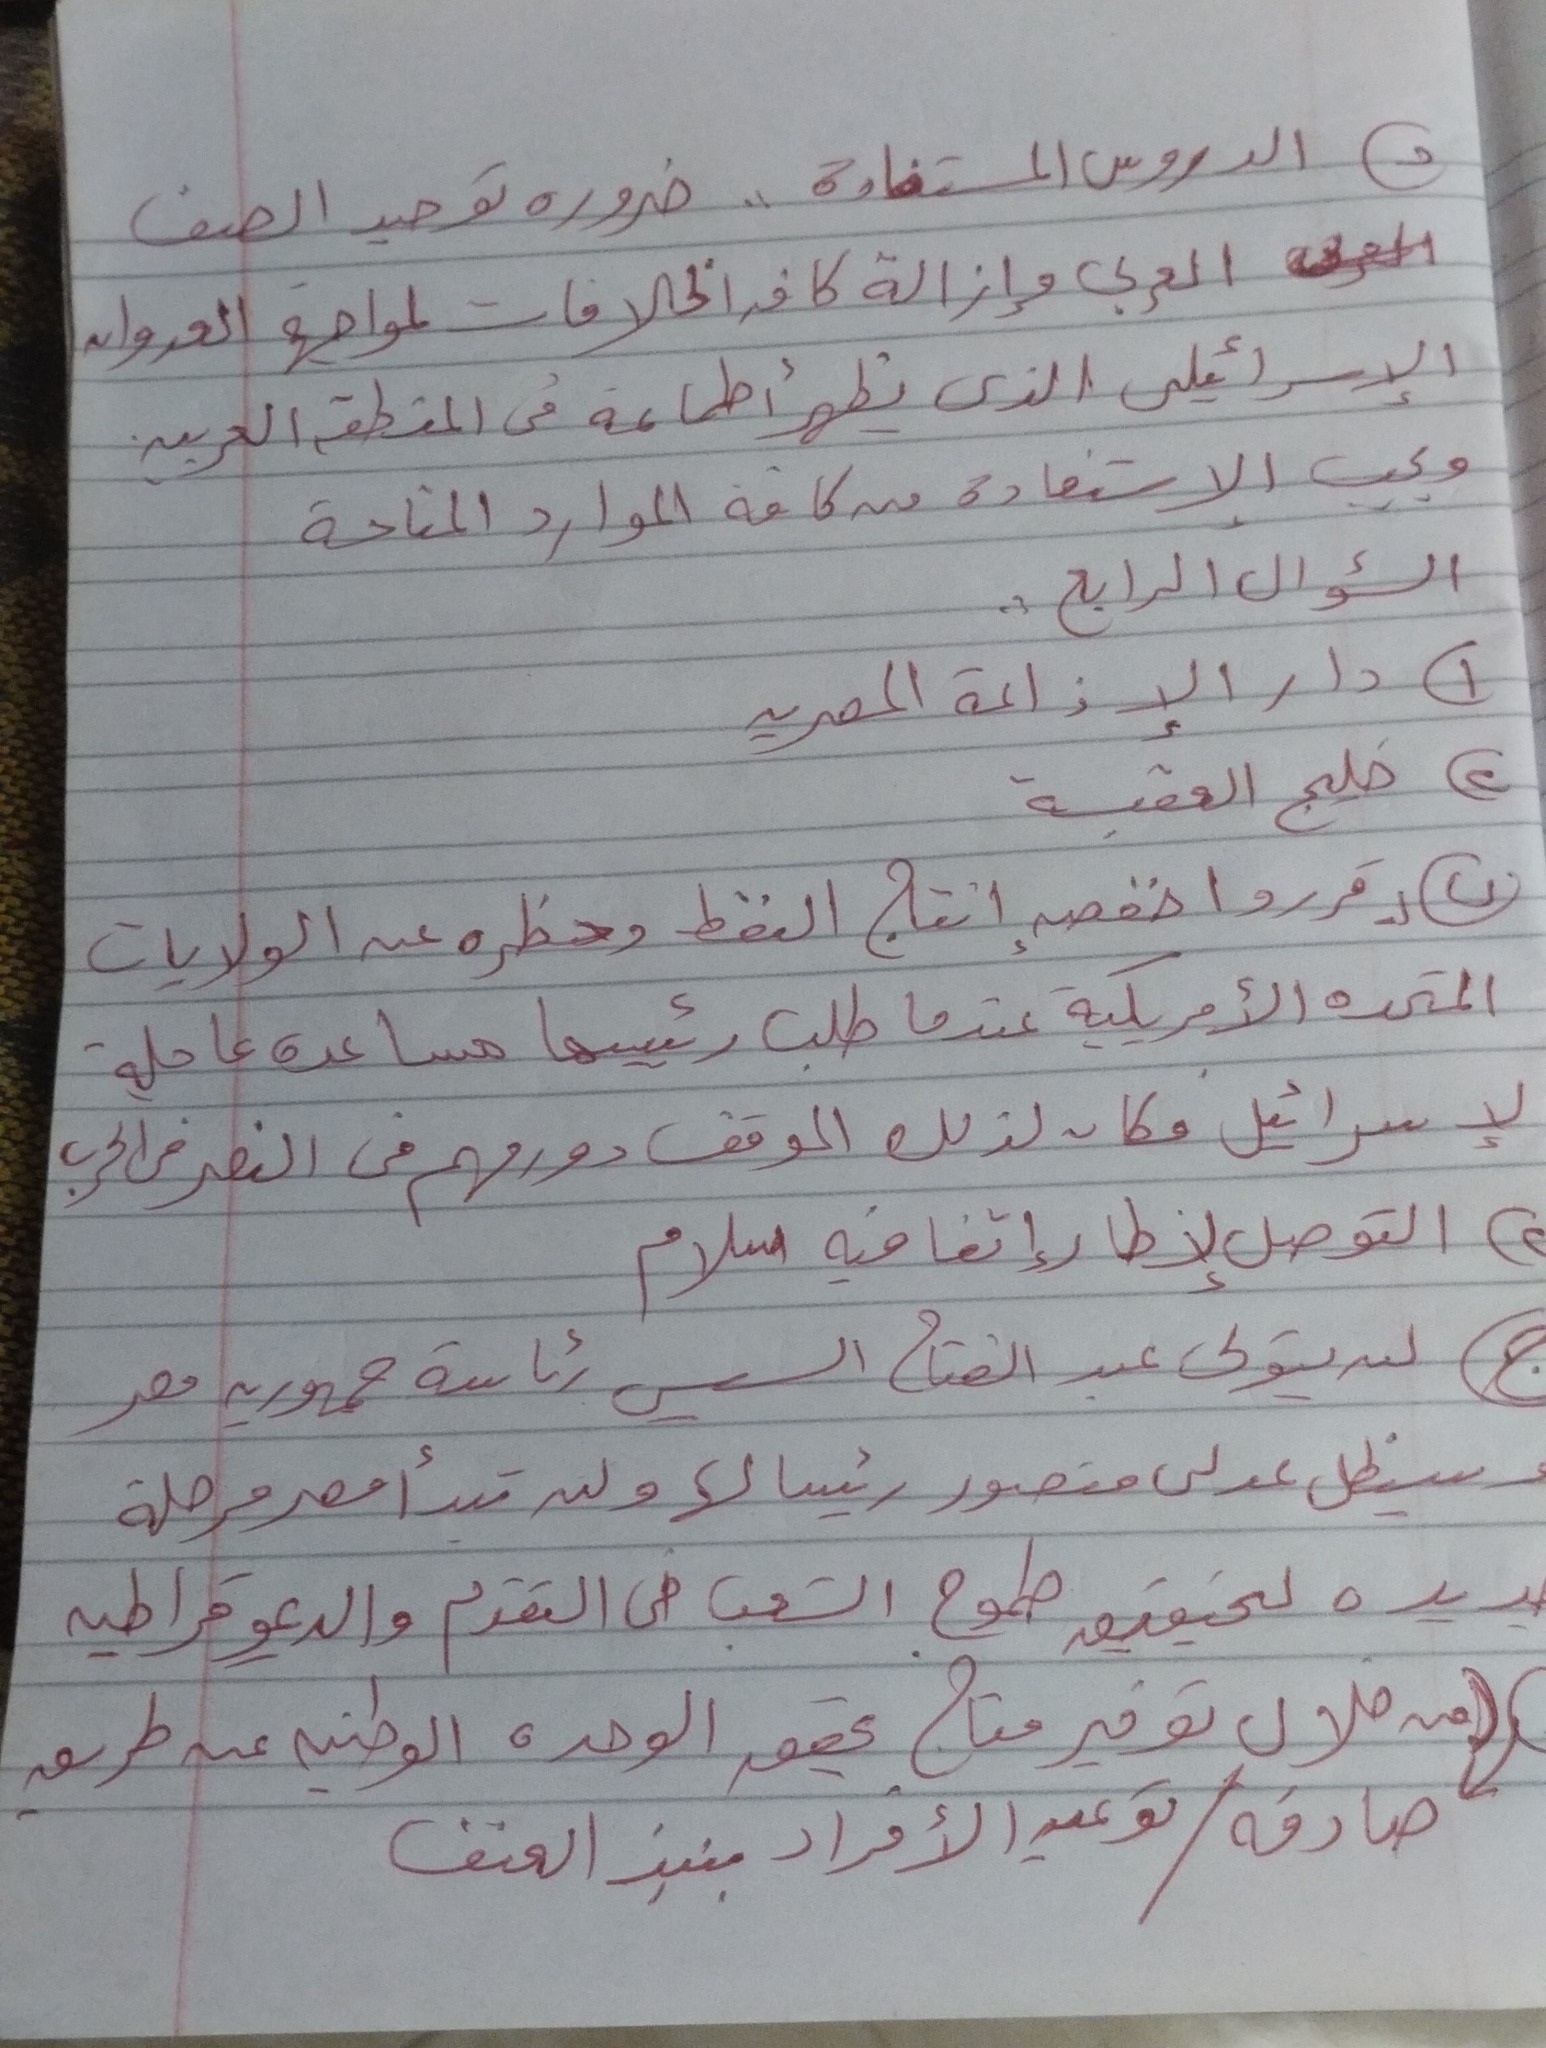 د) الدروس المستفادة .. ضروره توحيد الصف
العربي وإزالة كافه الخلافات لمواجهة العدوان
الإسرائيلى الذى يظهر أطماعة فى المنطقه العربيه
ويجب الإستفادة من كافة الموارد المتاحة
السؤال الرابع ..
١) دار الإذاعة المصريه
٢) خليج العقبة
ب) ١ـ قرروا خفض إنتاج النفط وحظره عن الولايات
المتحده الأمريكية عندما طلب رئيسها مساعدة عاجلة
لإسرائيل فكان لذلك الموقف دور مهم فى النصر فى الحرب
٢) التوصل لإطار إتفاقيه سلام
ج) لن يتولى عبد الفتاح السيسي رئاسة جمهوريه مصر
وسيظل عدلى منصور رئيسا لها ولن تبدأ مصر مرحلة
جديده لتحقيق طموح الشعب فى التقدم والديموقراطيه
د) من خلال توفير مناخ يحقق الوحده الوطنيه عن طريق
صادقه / توعيه الأفراد بنبذ العنف